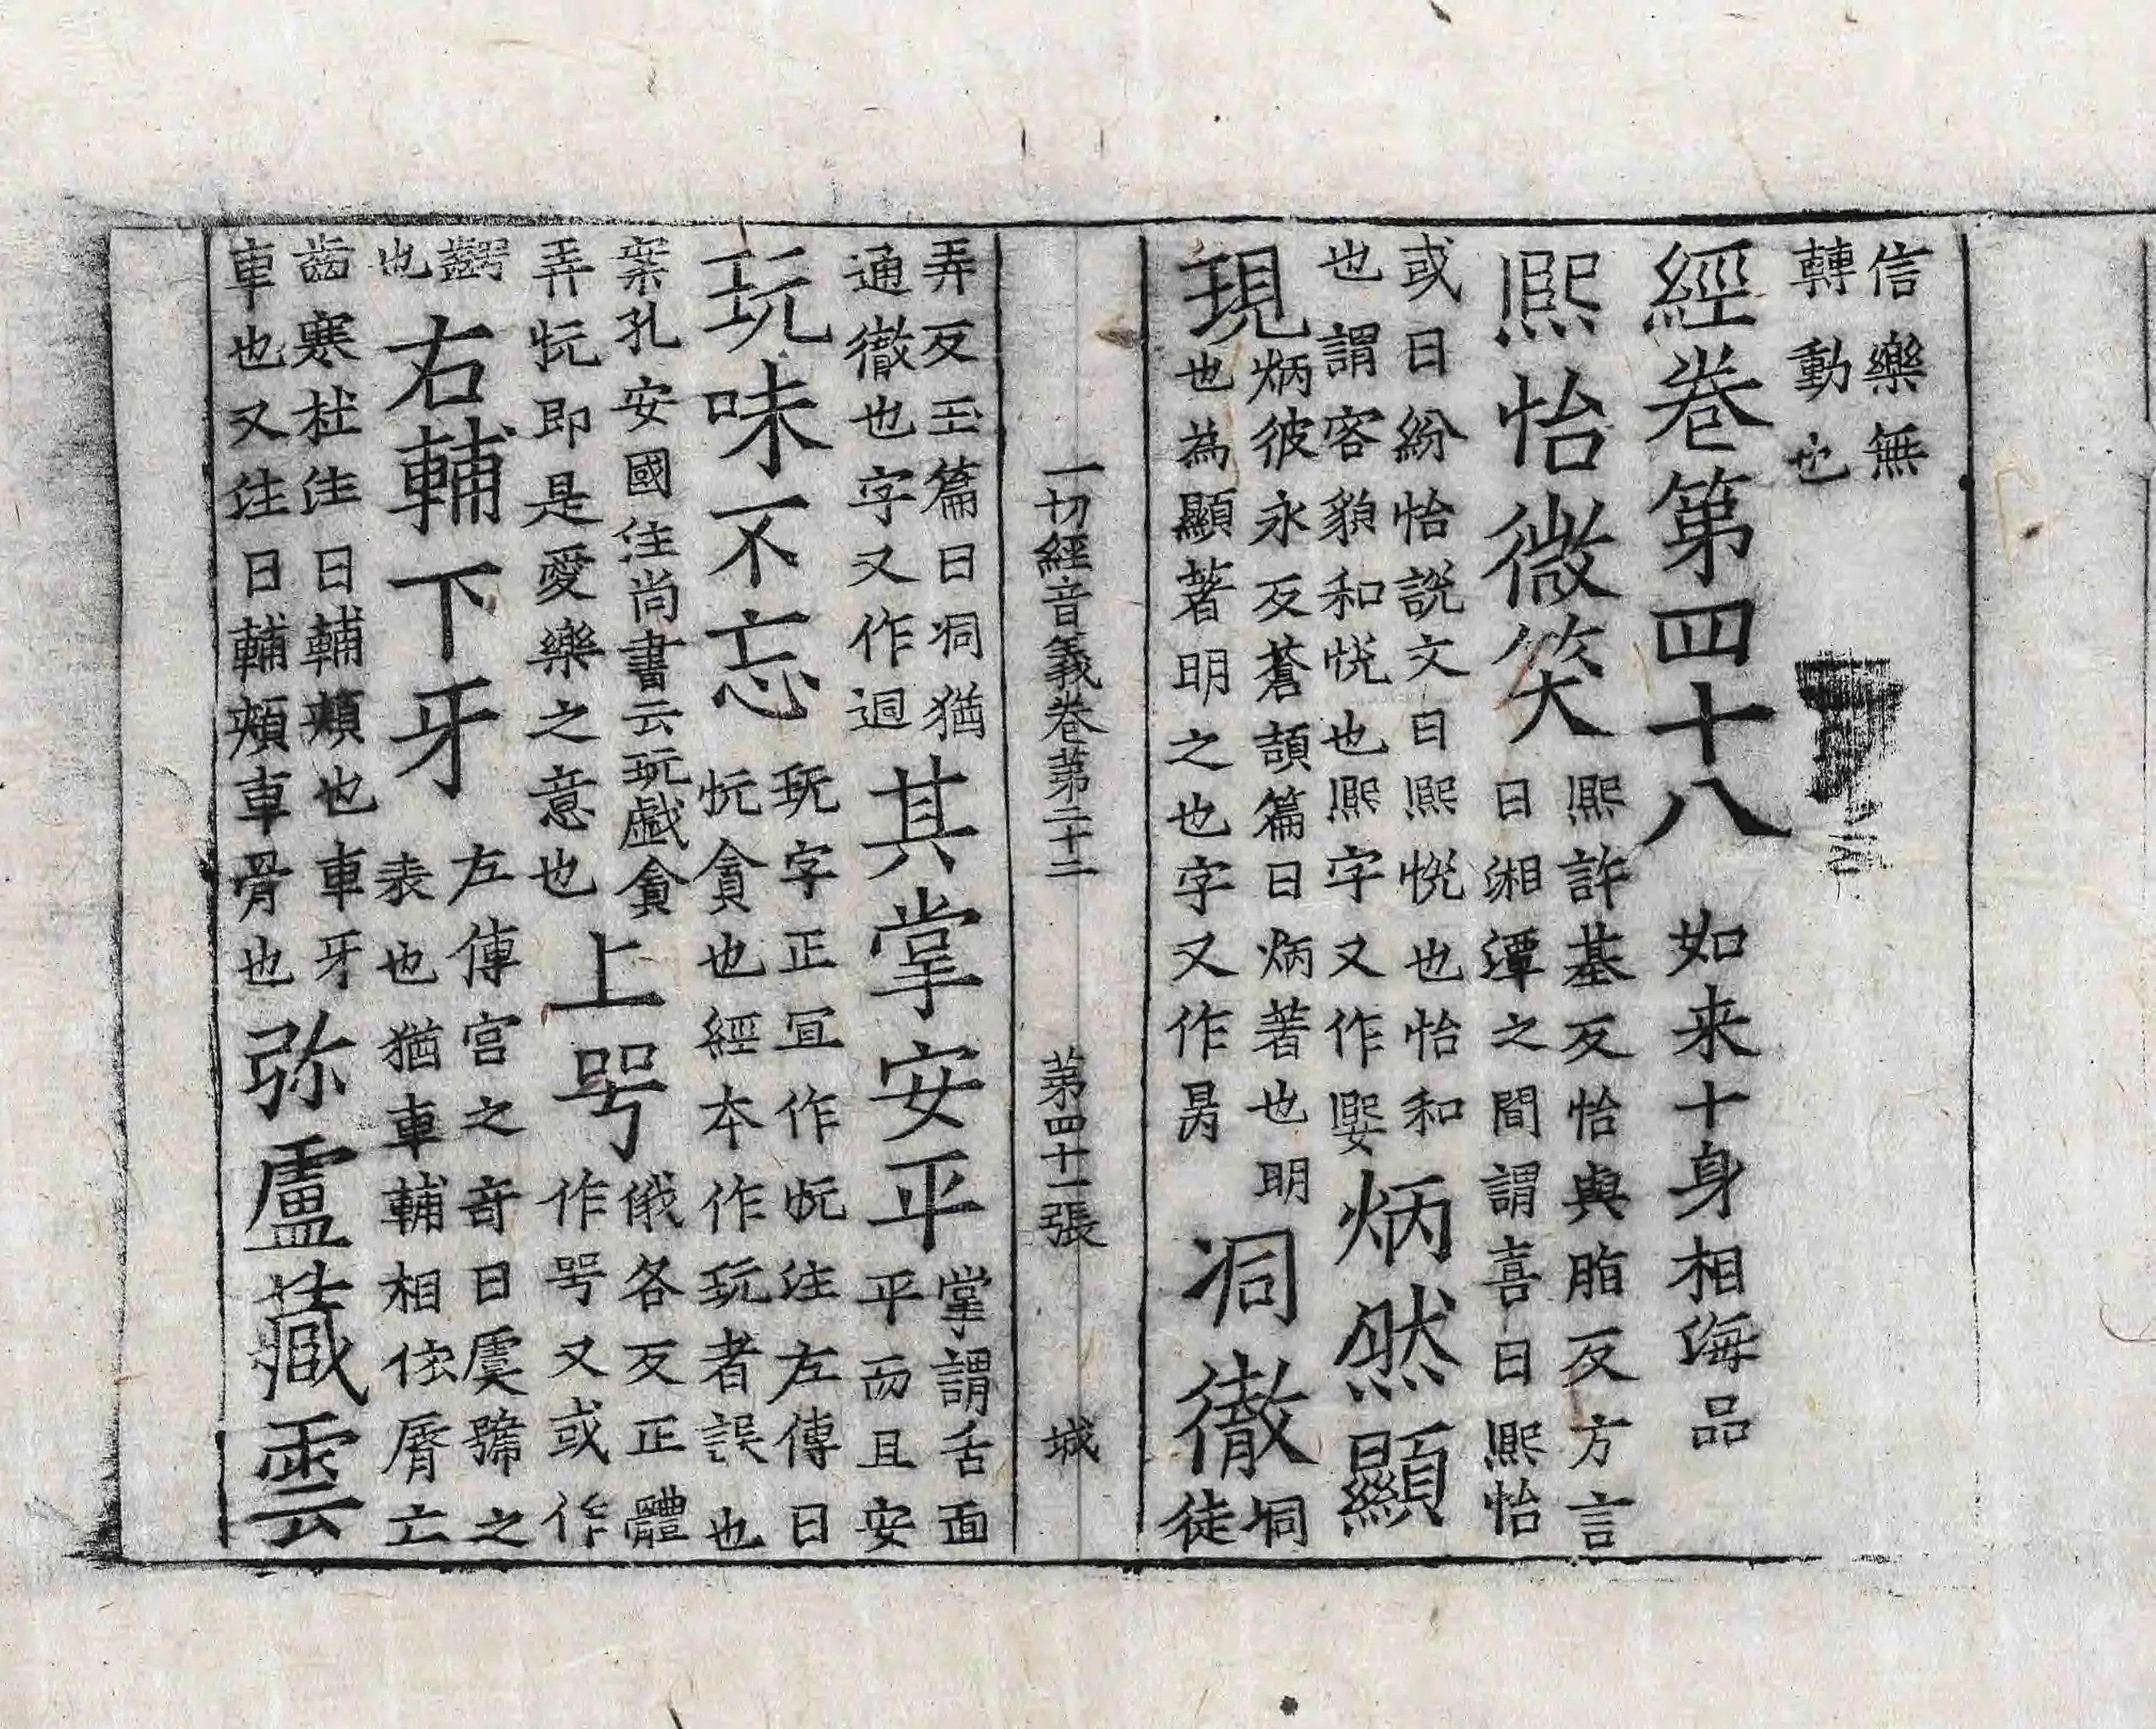 信樂無
轉動也
經卷第四十八 如来十身相海品
熈怡微笑 熈許基反怡與脂反方言
曰湘潭之間謂喜曰熈怡
或曰紛怡說文曰熈悅也怡和
也謂容貌和悅也熈字又作媐 炳然顯
現 炳彼永反蒼頡篇曰炳著也明
也為顯著明之也字又作昺 洞徹 洞徒
弄反玉篇曰洞猶
通徹也字又作迵 其掌安平 掌謂舌面
平而且安
玩味不忘 玩字正冝作忨注左傳曰
忨貪也經本作玩者誤也
案孔安國注尚書云玩戱貪
弄忨即是愛樂之意也 上咢 俄各反正體
作咢又或作
齶
也 右輔下牙 左傳宮之竒曰虞虢之
表也猶車輔相依脣亡
齒寒杜注曰輔頰也車牙
車也又注曰輔頰車骨也 弥盧藏雲
一切經音義卷第二十二 第四十一張 城